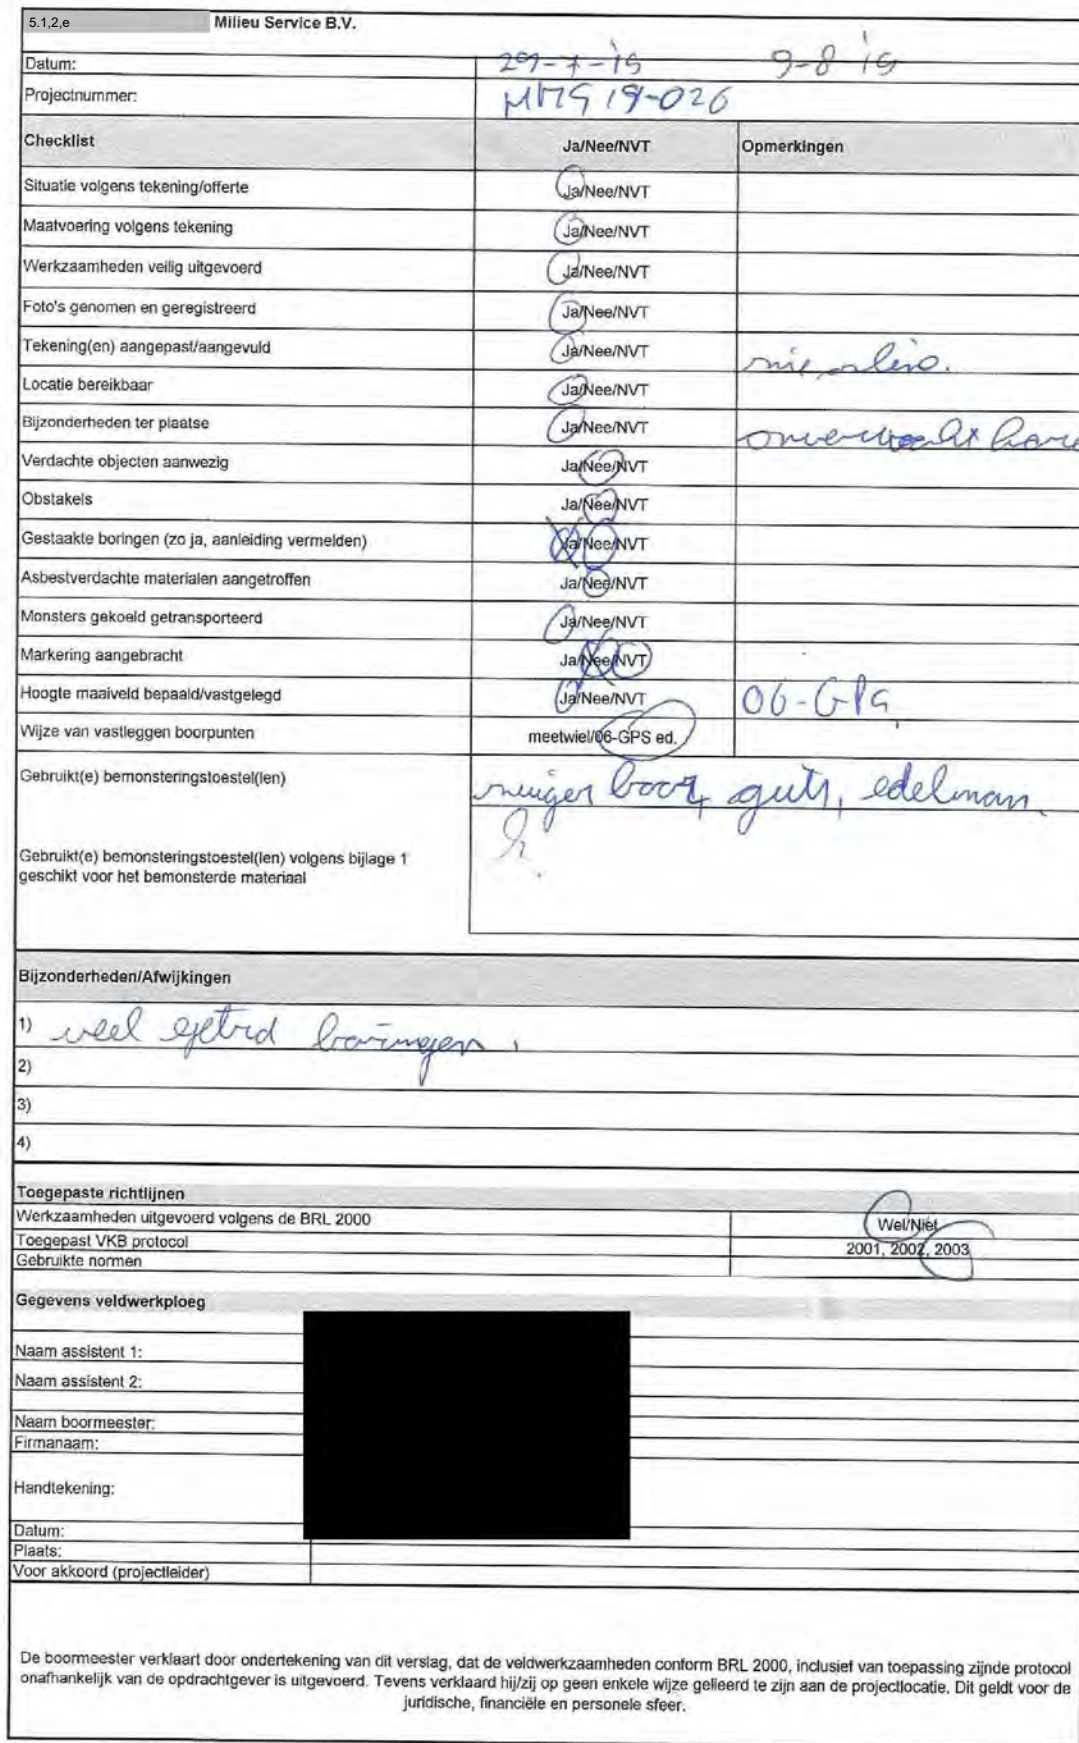 5.1,2,e Milieu Service B.V.
Datum: 29-7-19 9-8 19
Projectnummer: MMS 19-026
Checklist Ja/Nee/NVT Opmerkingen
Situatie volgens tekening/offerte Ja/Nee/NVT
Maatvoering volgens tekening Ja/Nee/NVT
Werkzaamheden veilig uitgevoerd Ja/Nee/NVT
Foto's genomen en geregistreerd Ja/Nee/NVT
Tekening(en) aangepast/aangevuld Ja/Nee/NVT
Locatie bereikbaar Ja/Nee/NVT
Bijzonderheden ter plaatse Ja/Nee/NVT onverwacht
Verdachte objecten aanwezig Ja/Nee/NVT
Obstakels Ja/Nee/NVT
Gestaakte boringen (zo ja, aanleiding vermelden) Ja/Nee/NVT
Asbestverdachte materialen aangetroffen Ja/Nee/NVT
Monsters gekoeld getransporteerd Ja/Nee/NVT
Markering aangebracht Ja/Nee/NVT
Hoogte maaiveld bepaald/vastgelegd Ja/Nee/NVT 06-GPS
Wijze van vastleggen boorpunten meetwiel/06-GPS ed.
Gebruikt(e) bemonsteringstoestel(len) zuiger boor, guts, edelman
Gebruikt(e) bemonsteringstoestel(len) volgens bijlage 1
geschikt voor het bemonsterde materiaal
Bijzonderheden/Afwijkingen
1) veel boringen.
2)
3)
4)
Toegepaste richtlijnen
Werkzaamheden uitgevoerd volgens de BRL 2000 Wel/Niet
Toegepast VKB protocol 2001, 2002, 2003
Gebruikte normen
Gegevens veldwerkploeg
Naam assistent 1:
Naam assistent 2:
Naam boormeester:
Firmanaam:
Handtekening:
Datum:
Plaats:
Voor akkoord (projectleider)
De boormeester verklaart door ondertekening van dit verslag, dat de veldwerkzaamheden conform BRL 2000, inclusief van toepassing zijnde protocol
onafhankelijk van de opdrachtgever is uitgevoerd. Tevens verklaard hij/zij op geen enkele wijze gelieerd te zijn aan de projectlocatie. Dit geldt voor de
juridische, financiële en personele sfeer.